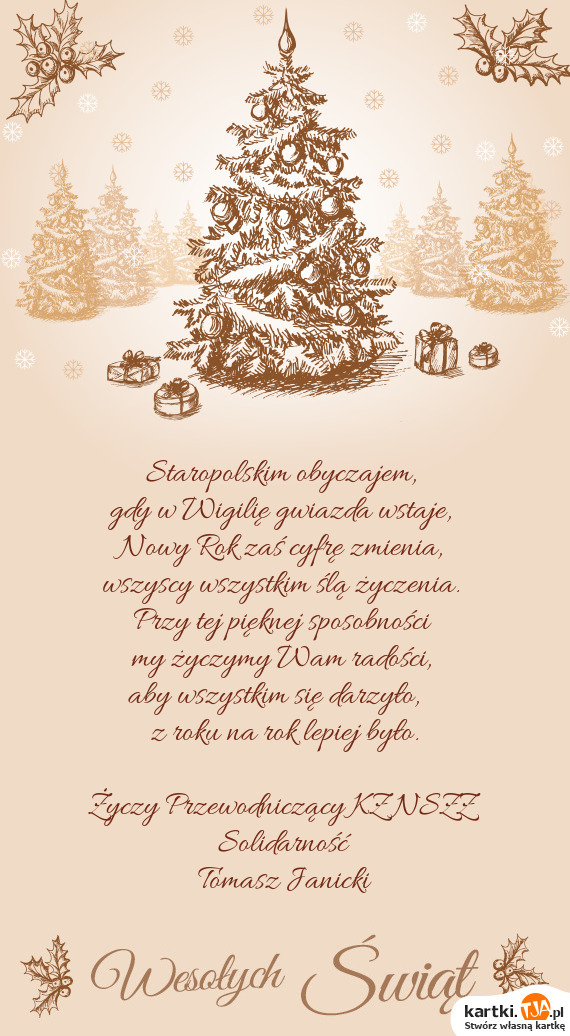 Staropolskim obyczajem,
gdy w Wigilię gwiazda wstaje,
Nowy Rok zaś cyfrę zmienia,
wszyscy wszystkim ślą życzenia.
Przy tej pięknej sposobności
my życzymy Wam radości,
aby wszystkim się darzyło,
z roku na rok lepiej było.
Życzy Przewodniczący KZ NSZZ
Solidarność
Tomasz Janicki
Wesołych Świąt
kartki.TJA.pl
Stwórz własną kartkę